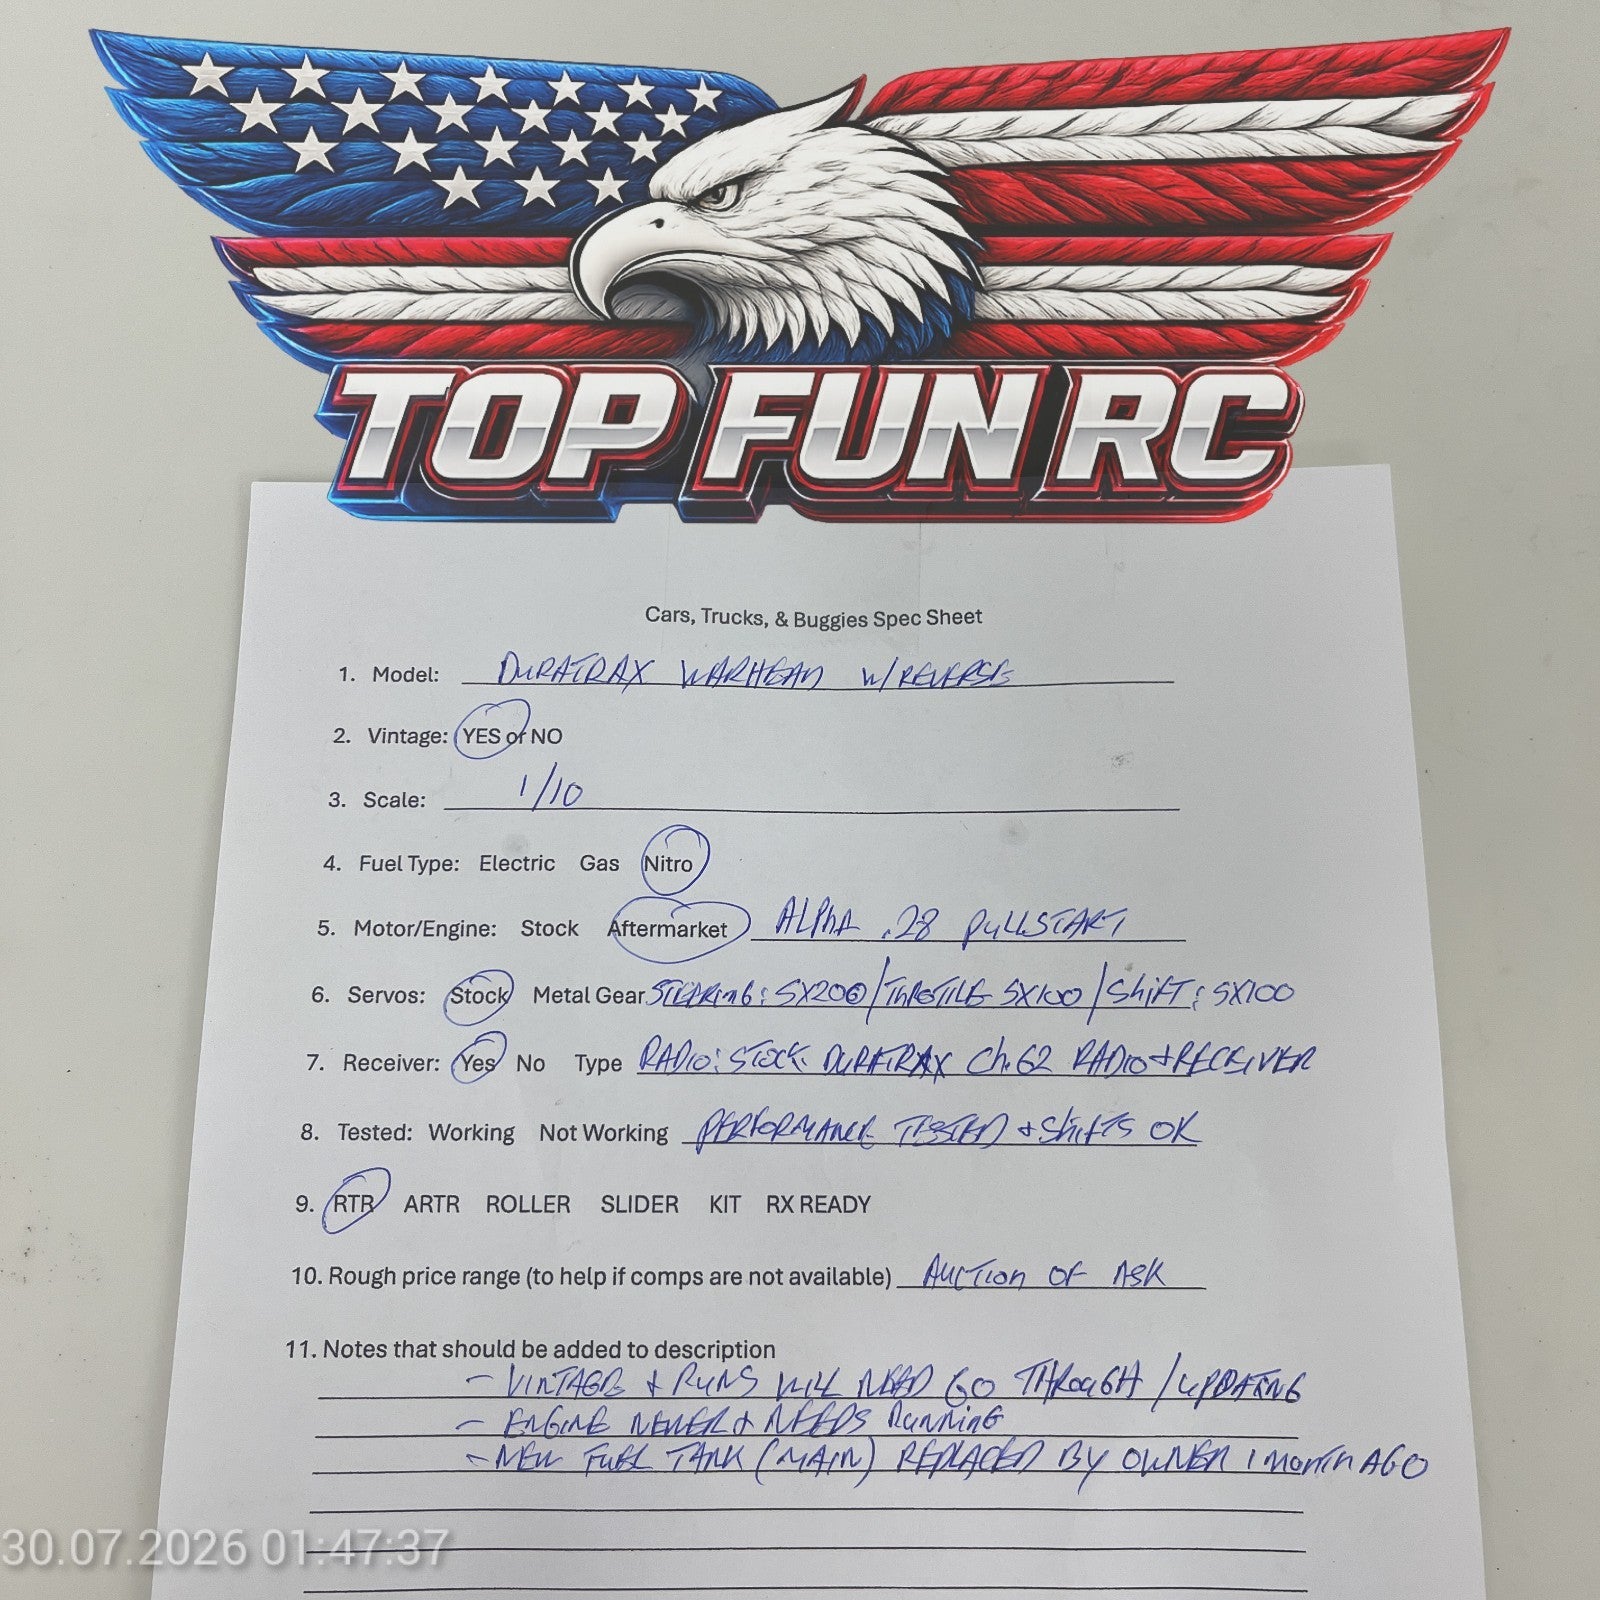 TOP FUN RC
Cars, Trucks, & Buggies Spec Sheet
1. Model: DURATRAX WARHEAD W/REVERSE
2. Vintage: YES or NO
3. Scale: 1/10
4. Fuel Type: Electric Gas Nitro
5. Motor/Engine: Stock Aftermarket ALPhA .28 PULLSTART
6. Servos: Stock Metal Gear STEARING: SX200/THROTTLE SX100/ShiFT: SX100
7. Receiver: Yes No Type RADIO: STOCK DURATRAX Ch.62 RADIO + RECEIVER
8. Tested: Working Not Working PERFORMANCE TESTED + ShifTS OK
9. RTR ARTR ROLLER SLIDER KIT RX READY
10. Rough price range (to help if comps are not available) AUCTION OF ASK
11. Notes that should be added to description
- VINTAGE & RUNS WILL NEED GO THROUGH / UPDATING
- ENGINE NEWER & NEEDS RUNNING
- NEW FUEL TANK (MAIN) REPLACED BY OWNER 1 MONTH AGO
30.07.2026 01:47:37